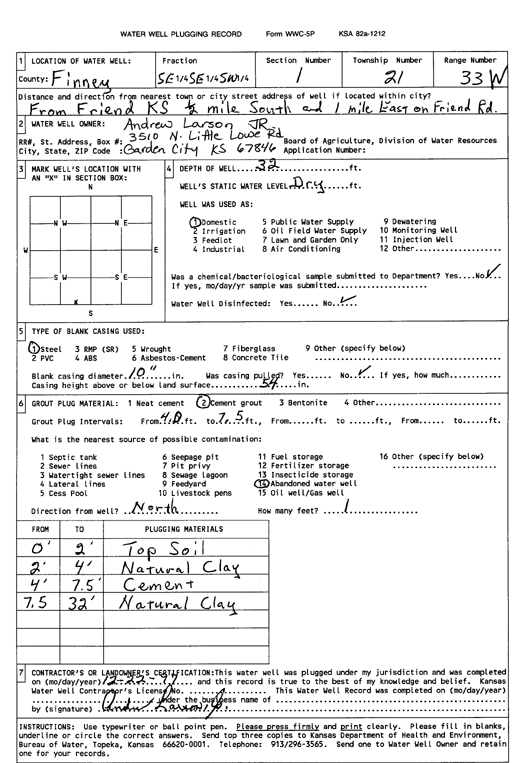 WATER WELL PLUGGING RECORD Form WWC-5P KSA 82a-1212
1 LOCATION OF WATER WELL: Fraction Section Number Township Number Range Number
County: Finney SE 1/4 SE 1/4 SW 1/4 1 21 33 W
Distance and direction from nearest town or city street address of well if located within city?
From Friend KS ½ mile South and 1 mile East on Friend Rd.
2 WATER WELL OWNER: Andrew Larson JR
RR#, St. Address, Box #: 3510 N. Little Lowe Rd Board of Agriculture, Division of Water Resources
City, State, ZIP Code : Garden City KS 67846 Application Number:
3 MARK WELL'S LOCATION WITH AN "X" IN SECTION BOX:
N
N W N E
W E
S W S E
x
S
4 DEPTH OF WELL....32....ft.
WELL'S STATIC WATER LEVEL..Dry....ft.
WELL WAS USED AS:
1 Domestic 5 Public Water Supply 9 Dewatering
2 Irrigation 6 Oil Field Water Supply 10 Monitoring Well
3 Feedlot 7 Lawn and Garden Only 11 Injection Well
4 Industrial 8 Air Conditioning 12 Other...............
Was a chemical/bacteriological sample submitted to Department? Yes....No✓
If yes, mo/day/yr sample was submitted...................
Water Well Disinfected: Yes..... No..✓
5 TYPE OF BLANK CASING USED:
1 Steel 3 RMP (SR) 5 Wrought 7 Fiberglass 9 Other (specify below)
2 PVC 4 ABS 6 Asbestos-Cement 8 Concrete Tile ..........................
Blank casing diameter.10"....in. Was casing pulled? Yes..... No.✓. If yes, how much..........
Casing height above or below land surface............54....in.
6 GROUT PLUG MATERIAL: 1 Neat cement 2 Cement grout 3 Bentonite 4 Other...............
Grout Plug Intervals: From.4.0..ft. to.7.5.ft., From......ft. to ......ft., From...... to......ft.
What is the nearest source of possible contamination:
1 Septic tank 6 Seepage pit 11 Fuel storage 16 Other (specify below)
2 Sewer lines 7 Pit privy 12 Fertilizer storage ..................
3 Watertight sewer lines 8 Sewage lagoon 13 Insecticide storage
4 Lateral lines 9 Feedyard 14 Abandoned water well
5 Cess Pool 10 Livestock pens 15 Oil well/Gas well
Direction from well? ..North......... How many feet? .....1.........
FROM TO PLUGGING MATERIALS
0' 2' Top Soil
2' 4' Natural Clay
4' 7.5' Cement
7.5 32' Natural Clay
7 CONTRACTOR'S OR LANDOWNER'S CERTIFICATION: This water well was plugged under my jurisdiction and was completed
on (mo/day/year) and this record is true to the best of my knowledge and belief. Kansas
Water Well Contractor's License No. .............. This Water Well Record was completed on (mo/day/year)
under the business name of
by (signature)
INSTRUCTIONS: Use typewriter or ball point pen. Please press firmly and print clearly. Please fill in blanks,
underline or circle the correct answers. Send top three copies to Kansas Department of Health and Environment,
Bureau of Water, Topeka, Kansas 66620-0001. Telephone: 913/296-3565. Send one to Water Well Owner and retain
one for your records.